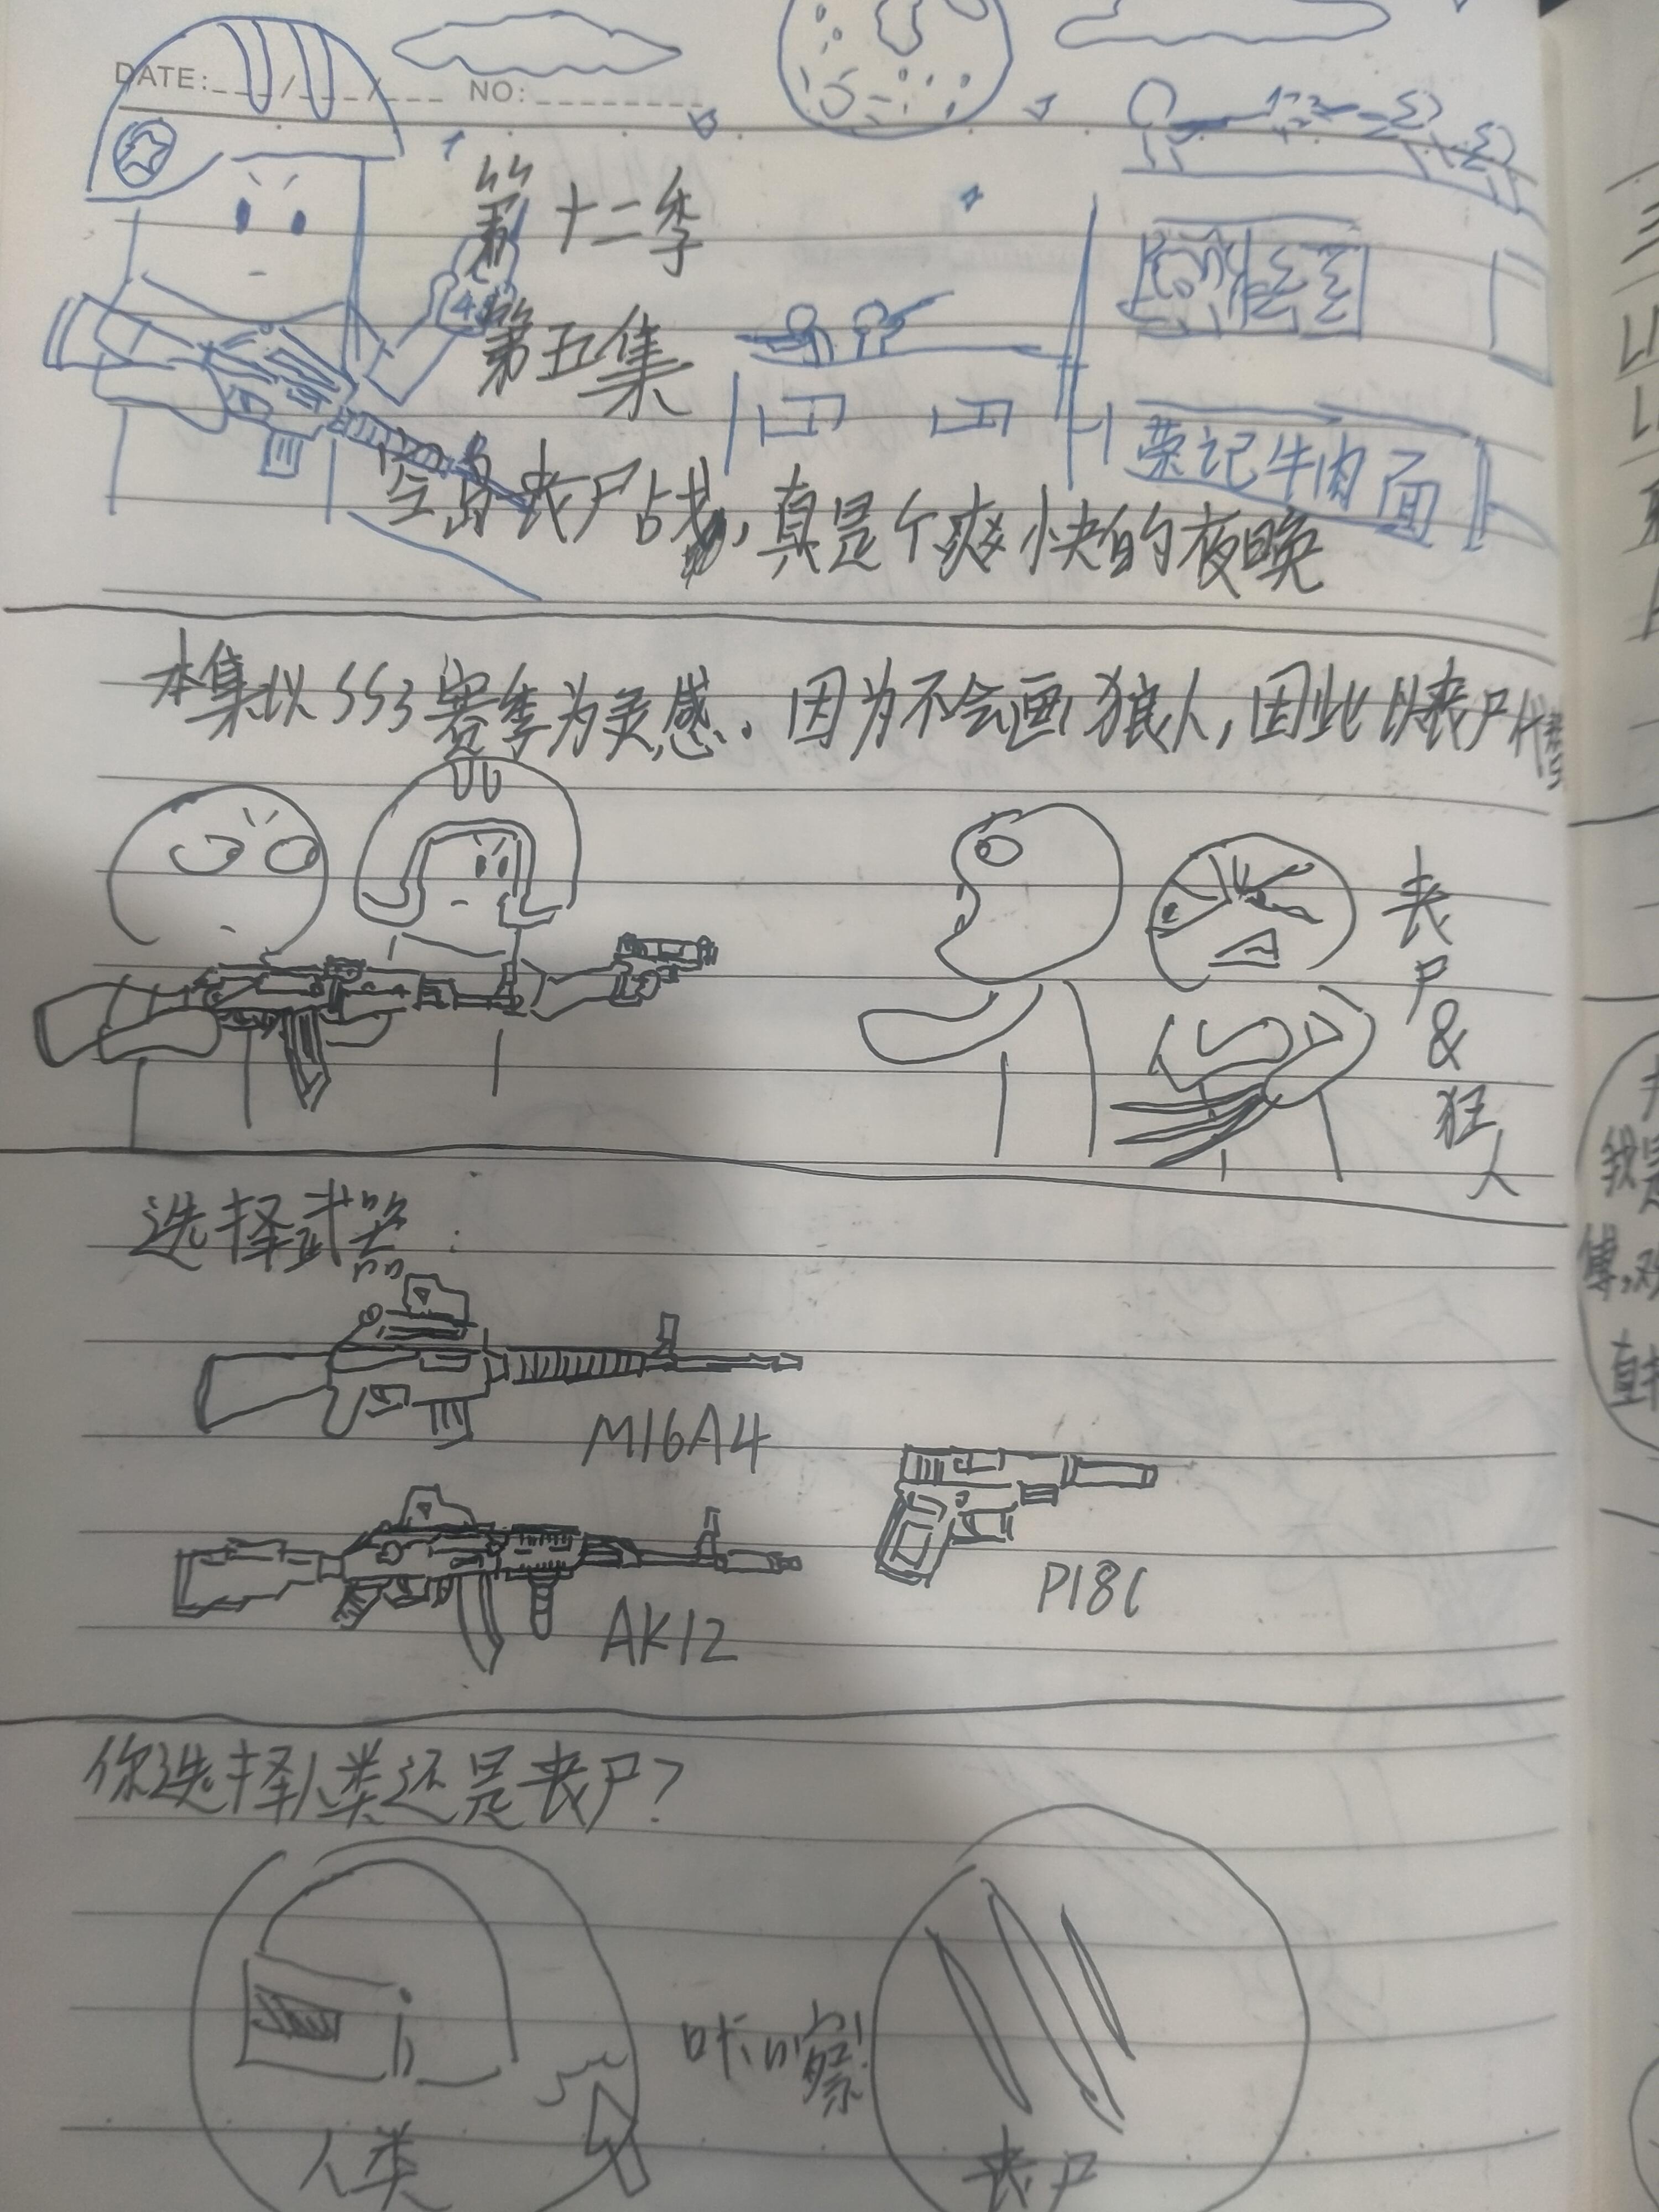 DATE: / / NO:
第十二季
第五集
荣记牛肉面
全岛丧尸战，真是个爽快的夜晚
本集以SS3赛季为灵感。因为不会画狼人，因此以丧尸代替
丧尸&狂人
选择武器：
M16A4
P18C
AK12
你选择人类还是丧尸？
咔嚓！
人类
丧尸
我是